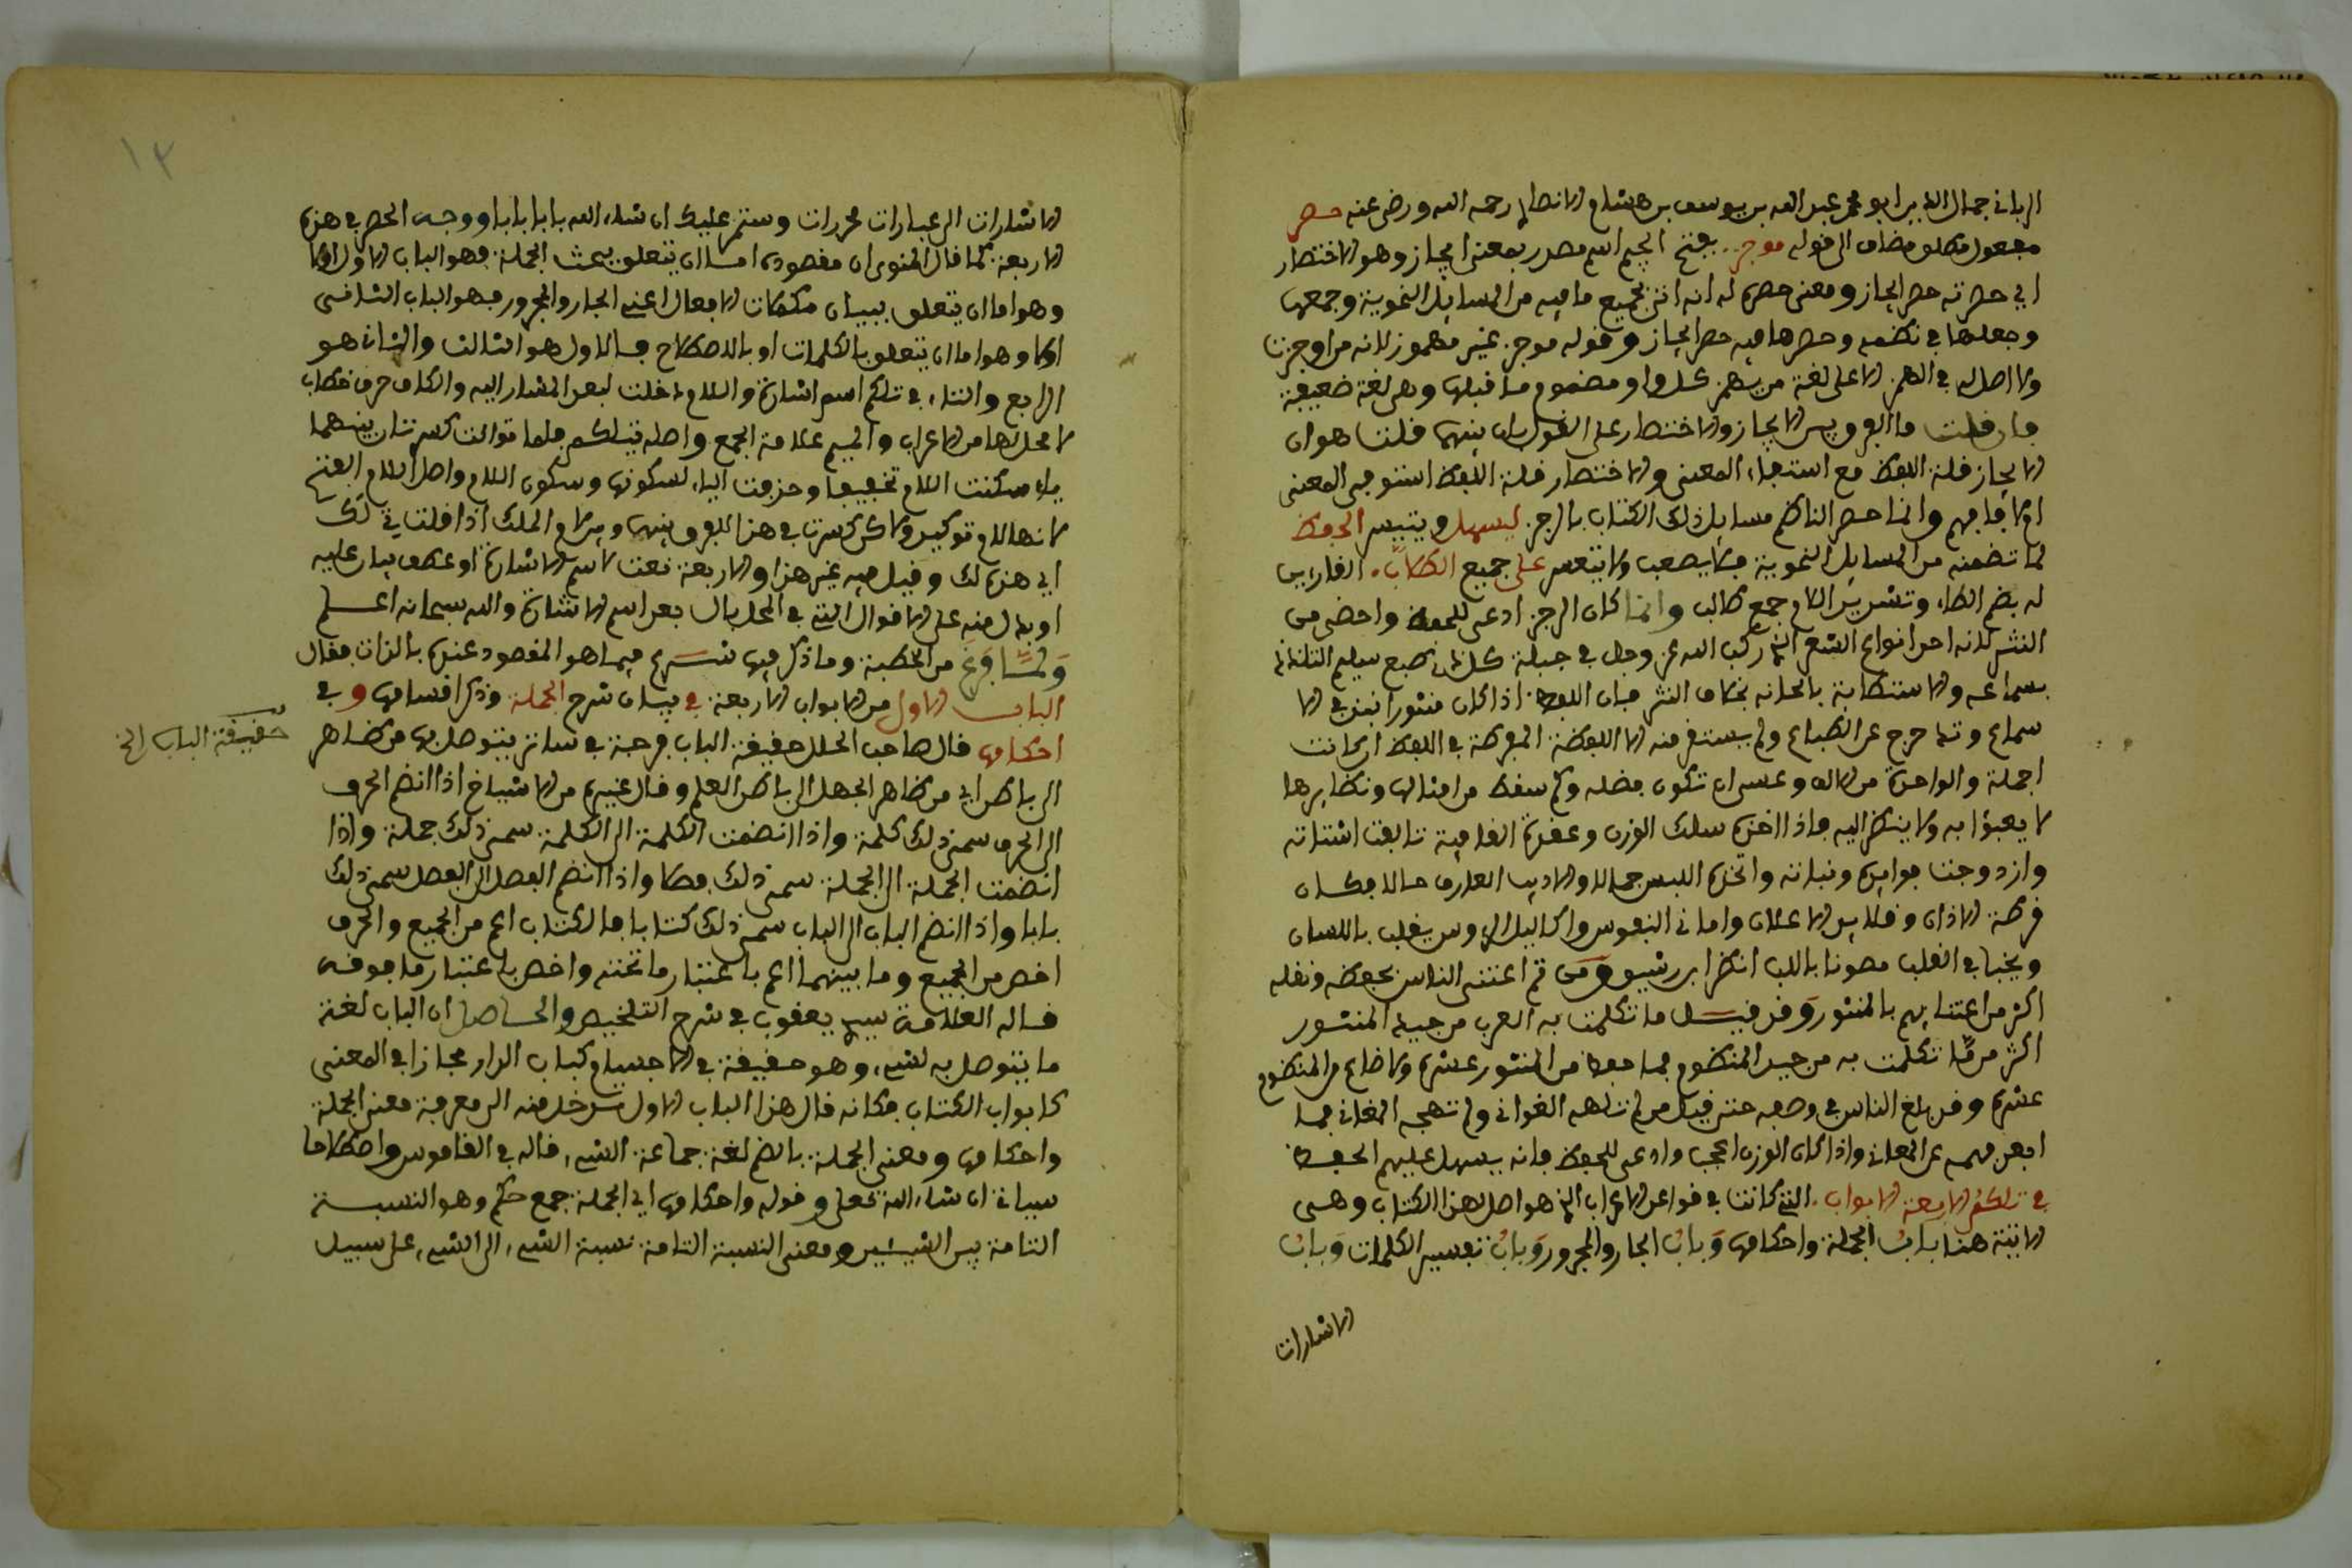 الرباني جمال الدين ابو محمد عبد الله بن يوسف بن هشام الانصاري رحمه الله ورضي عنه حصر
مفعول مطلق مضاف الى قوله موجز بفتح الجيم اسم مصدر بمعنى ايجاز وهو الاختصار
اي حصرته حصر ايجاز ومعنى حصره له انه اتى بجميع ما فيه من المسايل النحوية وجمعها
وجعلها في نظمه وحصرها فيه حصر ايجاز وقوله موجز غير مهموز لانه من اوجزت
ولا اصل له في الهمز الا على لغة من يهمز كل واو مضموم ما قبلها وهي لغة ضعيفة
فان قلت ما الفرق بين الايجاز والاختصار على القول بان بينهما قلت هو ان
الايجاز قلة اللفظ مع استيفاء المعنى والاختصار قلة اللفظ استوفى المعنى
ام لا فافهم وانما حصر الناظم مسايل ذلك الكتاب بالرجز ليسهل ويتيسر الحفظ
لما تضمنه من المسايل النحوية فلا يصعب ولا يتعسر على جميع الطلاب القارين
له بضم الطاء وتشديد اللام جمع طالب وانما كان الرجز ادعى للحفظ واحضى من
النثر لانه احد انواع الشعر الذي ركب الله عز وجل في جبلة كل ذي طبع سليم التلذذ
بسماعه والاستطابة بالحانه بخلاف النثر فان اللفظ اذا كان منثورا تبدد في الا
سماع وتدحرج عن الطباع ولم يستقر منه الا اللفظة المفرطة في اللفظ ان كانت
اجملة والواحدة من الالف وعسى ان تكون افضله وكم سقط من امثالها ونظايرها
لا يعبؤا به ولا ينظر اليه فاذا اخذه سلك الوزن وعقدة القافية تالفت اشتاته
وازدوجت فوايده ونباته واتخذه اللابس جمالا والاديب العارف مالا فكان
قرطة الاذان وقلايد الاعناق واماني النفوس واكاليل الرءوس يقلب باللسان
ويخبا في القلب مصونا باللب انظر ابن رشيق ومن ثم اعتنى الناس بحفظه ونقله
اكثر من اعتنايهم بالمنثور وقد قيل ما تكلمت به العرب من جيد المنثور
اكثر مما تكلمت به من جيد المنظوم فما حفظ من المنثور عشره ولا ضاع من المنظوم
عشره وقد بلغ الناس في وصفه حتى قيل من لم تلهه الغواني ولم تهجه المغاني فما
ابعد فهمه عن المعاني واذا كان الوزن اعجب وادعى للحفظ فانه يسهل عليهم الحفظ
في تلكم الاربعة الابواب التي كانت في قواعد الاعراب الذي هو اصل هذا الكتاب وهي
الاتية هنا باب الجملة واحكامها وباب الجار والمجرور وباب تفسير الكلمات وباب
الاشارات
١٣
الاشارات الى عبارات محررات وستمر عليك ان شاء الله بابا بابا ووجه الحصر في هذه
الاربعة كما قال المنوي ان مقصوده اما ان يتعلق ببحث الجملة فهو الباب الاول او لا
وهو اما ان يتعلق ببيان متعلقات الافعال اعني الجار والمجرور فهو الباب الثاني
او لا وهو اما ان يتعلق بالكلمات او بالاصطلاح فالاول هو الثالث والثاني هو
الرابع والتاء في تلكم اسم اشارة واللام دخلت لبعد المشار اليه والكاف حرف خطاب
لا محل لها من الاعراب والميم علامة الجمع واصله تيلكم فلما توالت كسرتان بينهما
ياء سكنت اللام تخفيفا وحذفت الياء لسكونها وسكون اللام واصل اللام الفتح
لانها لام توكيد ولكن كسرت في هذا للفرق بينها وبين لام الملك اذا قلت في لك
اي هذه لك وقيل فيه غير هذا والاربعة نعت لاسم الاشارة او عطف بيان عليه
او بدل منه على الاقوال التي في المحلى بال بعد اسم الاشارة والله سبحانه اعلم
ولما فرغ من الخطبة وما ذكر فيها شرع فيما هو المقصود عنده بالذات فقال
الباب الاول من الابواب الاربعة في بيان شرح الجملة وذكر اقسامها وفي
احكامها قال صاحب الحلل حقيقة الباب فرجة في ساتر يتوصل بها من ظاهر
حقيقة الباب الخ
الى باطن اي من ظاهر الجهل الى باطن العلم وقال غيره من الاشياخ اذا انضم الحرف
الى الحرف سمي ذلك كلمة واذا انضمت الكلمة الى الكلمة سمي ذلك جملة واذا
انضمت الجملة الى الجملة سمي ذلك فصلا واذا انضم الفصل الى الفصل سمي ذلك
بابا واذا انضم الباب الى الباب سمي ذلك كتابا فالكتاب اعم من الجميع والحرف
اخص من الجميع وما بينهما اعم باعتبار ما تحته واخص باعتبار ما فوقه
قاله العلامة سيدي يعقوب في شرح التلخيص والحاصل ان الباب لغة
ما يتوصل به لشيء وهو حقيقة في الاجسام كباب الدار مجازا في المعنى
كابواب الكتاب فكانه قال هذا الباب الاول تدخل منه الى معرفة معنى الجملة
واحكامها ومعنى الجملة بالضم لغة جماعة الشيء قاله في القاموس واصطلاحا
سياتي ان شاء الله تعالى وقوله واحكامها اي الجملة جمع حكم وهو النسبة
التامة بين الشيئين ومعنى النسبة التامة نسبة الشيء الى الشيء على سبيل